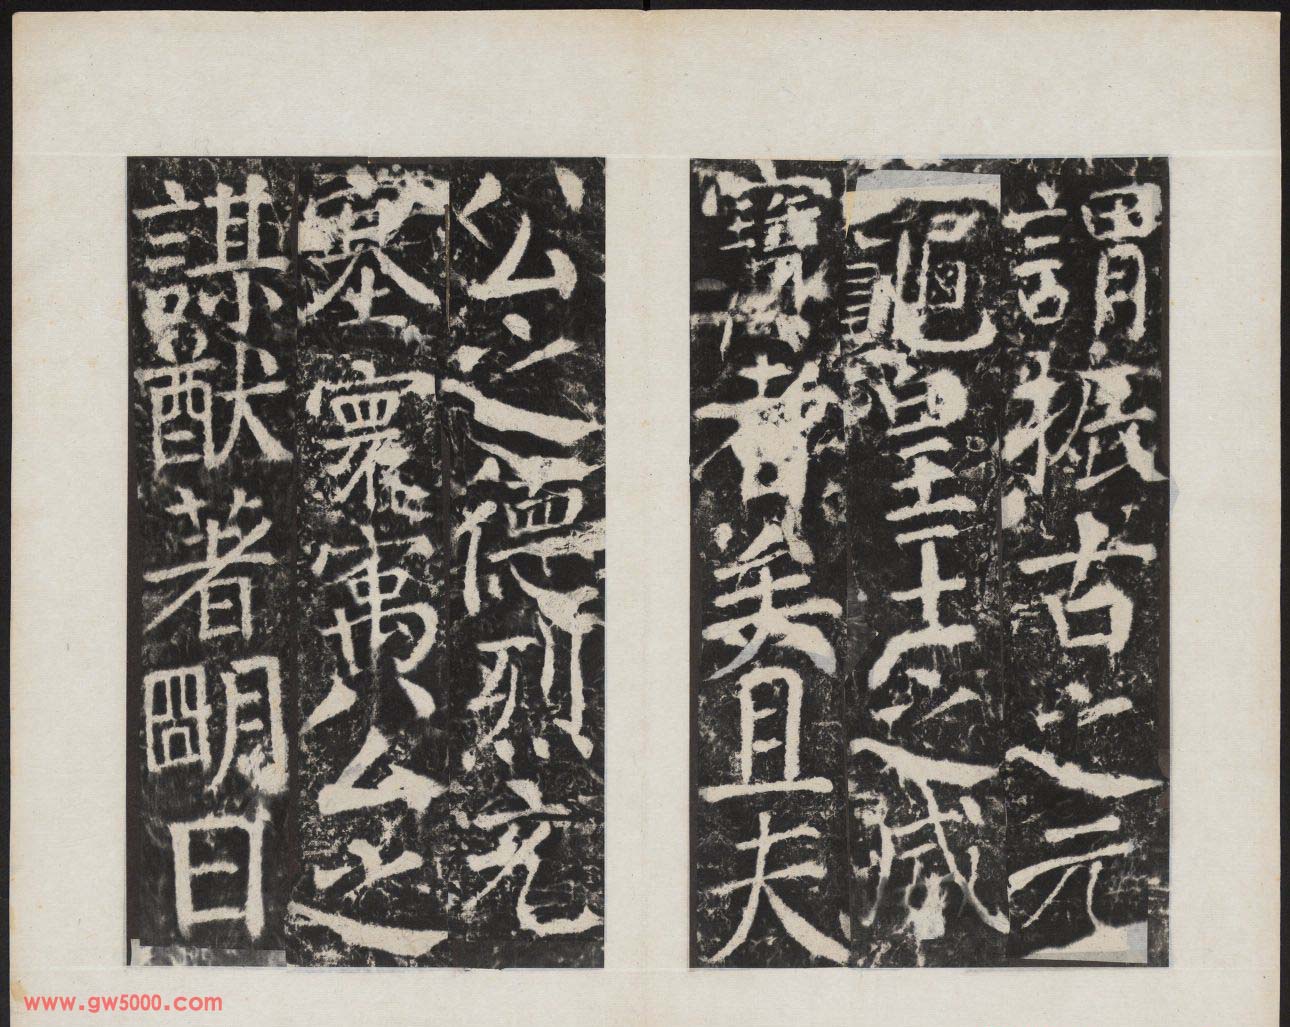 謂振古之元
龜皇王之威
寶者矣且夫
公之德烈充
塞寰寓公之
謀猷著明日
www.gw5000.com